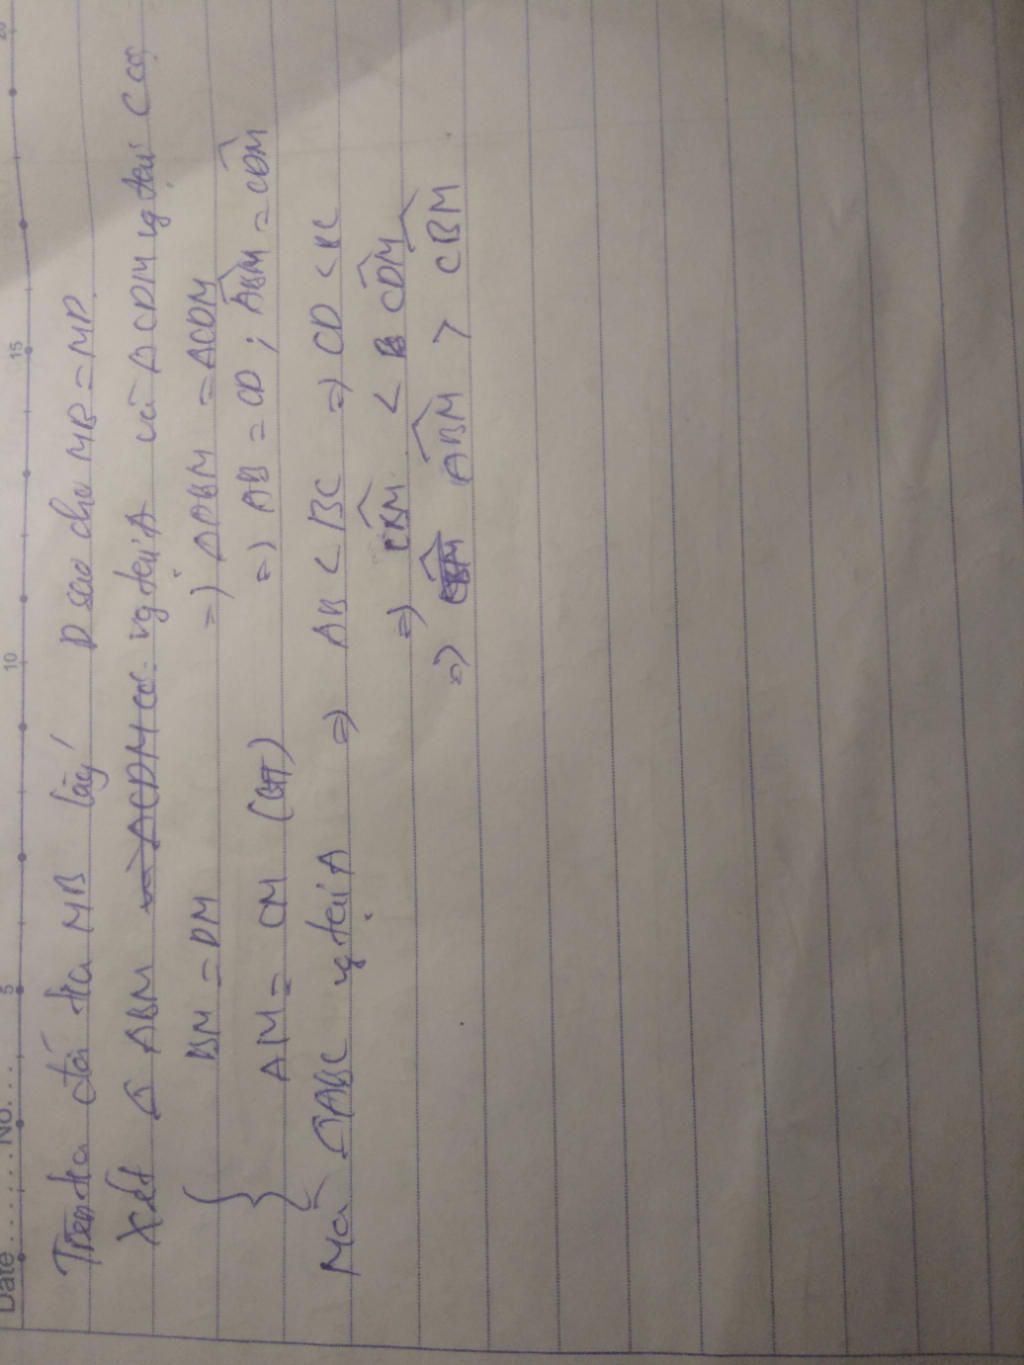 Date ....... No. ...
5 10 15 20
Trên tia đối tia MB lấy D sao cho MB = MD
Xét Δ ABM và ΔCDM có vg tại A và Δ CDM vg tại C có
BM = DM => ΔABM = ΔCDM
AM = CM (GT) => AB = CD ; ABM = CDM
Mà ΔABC vg tại A => AB < BC => CD < BC
=> CBM < B CDM
=> CBM ABM > CBM